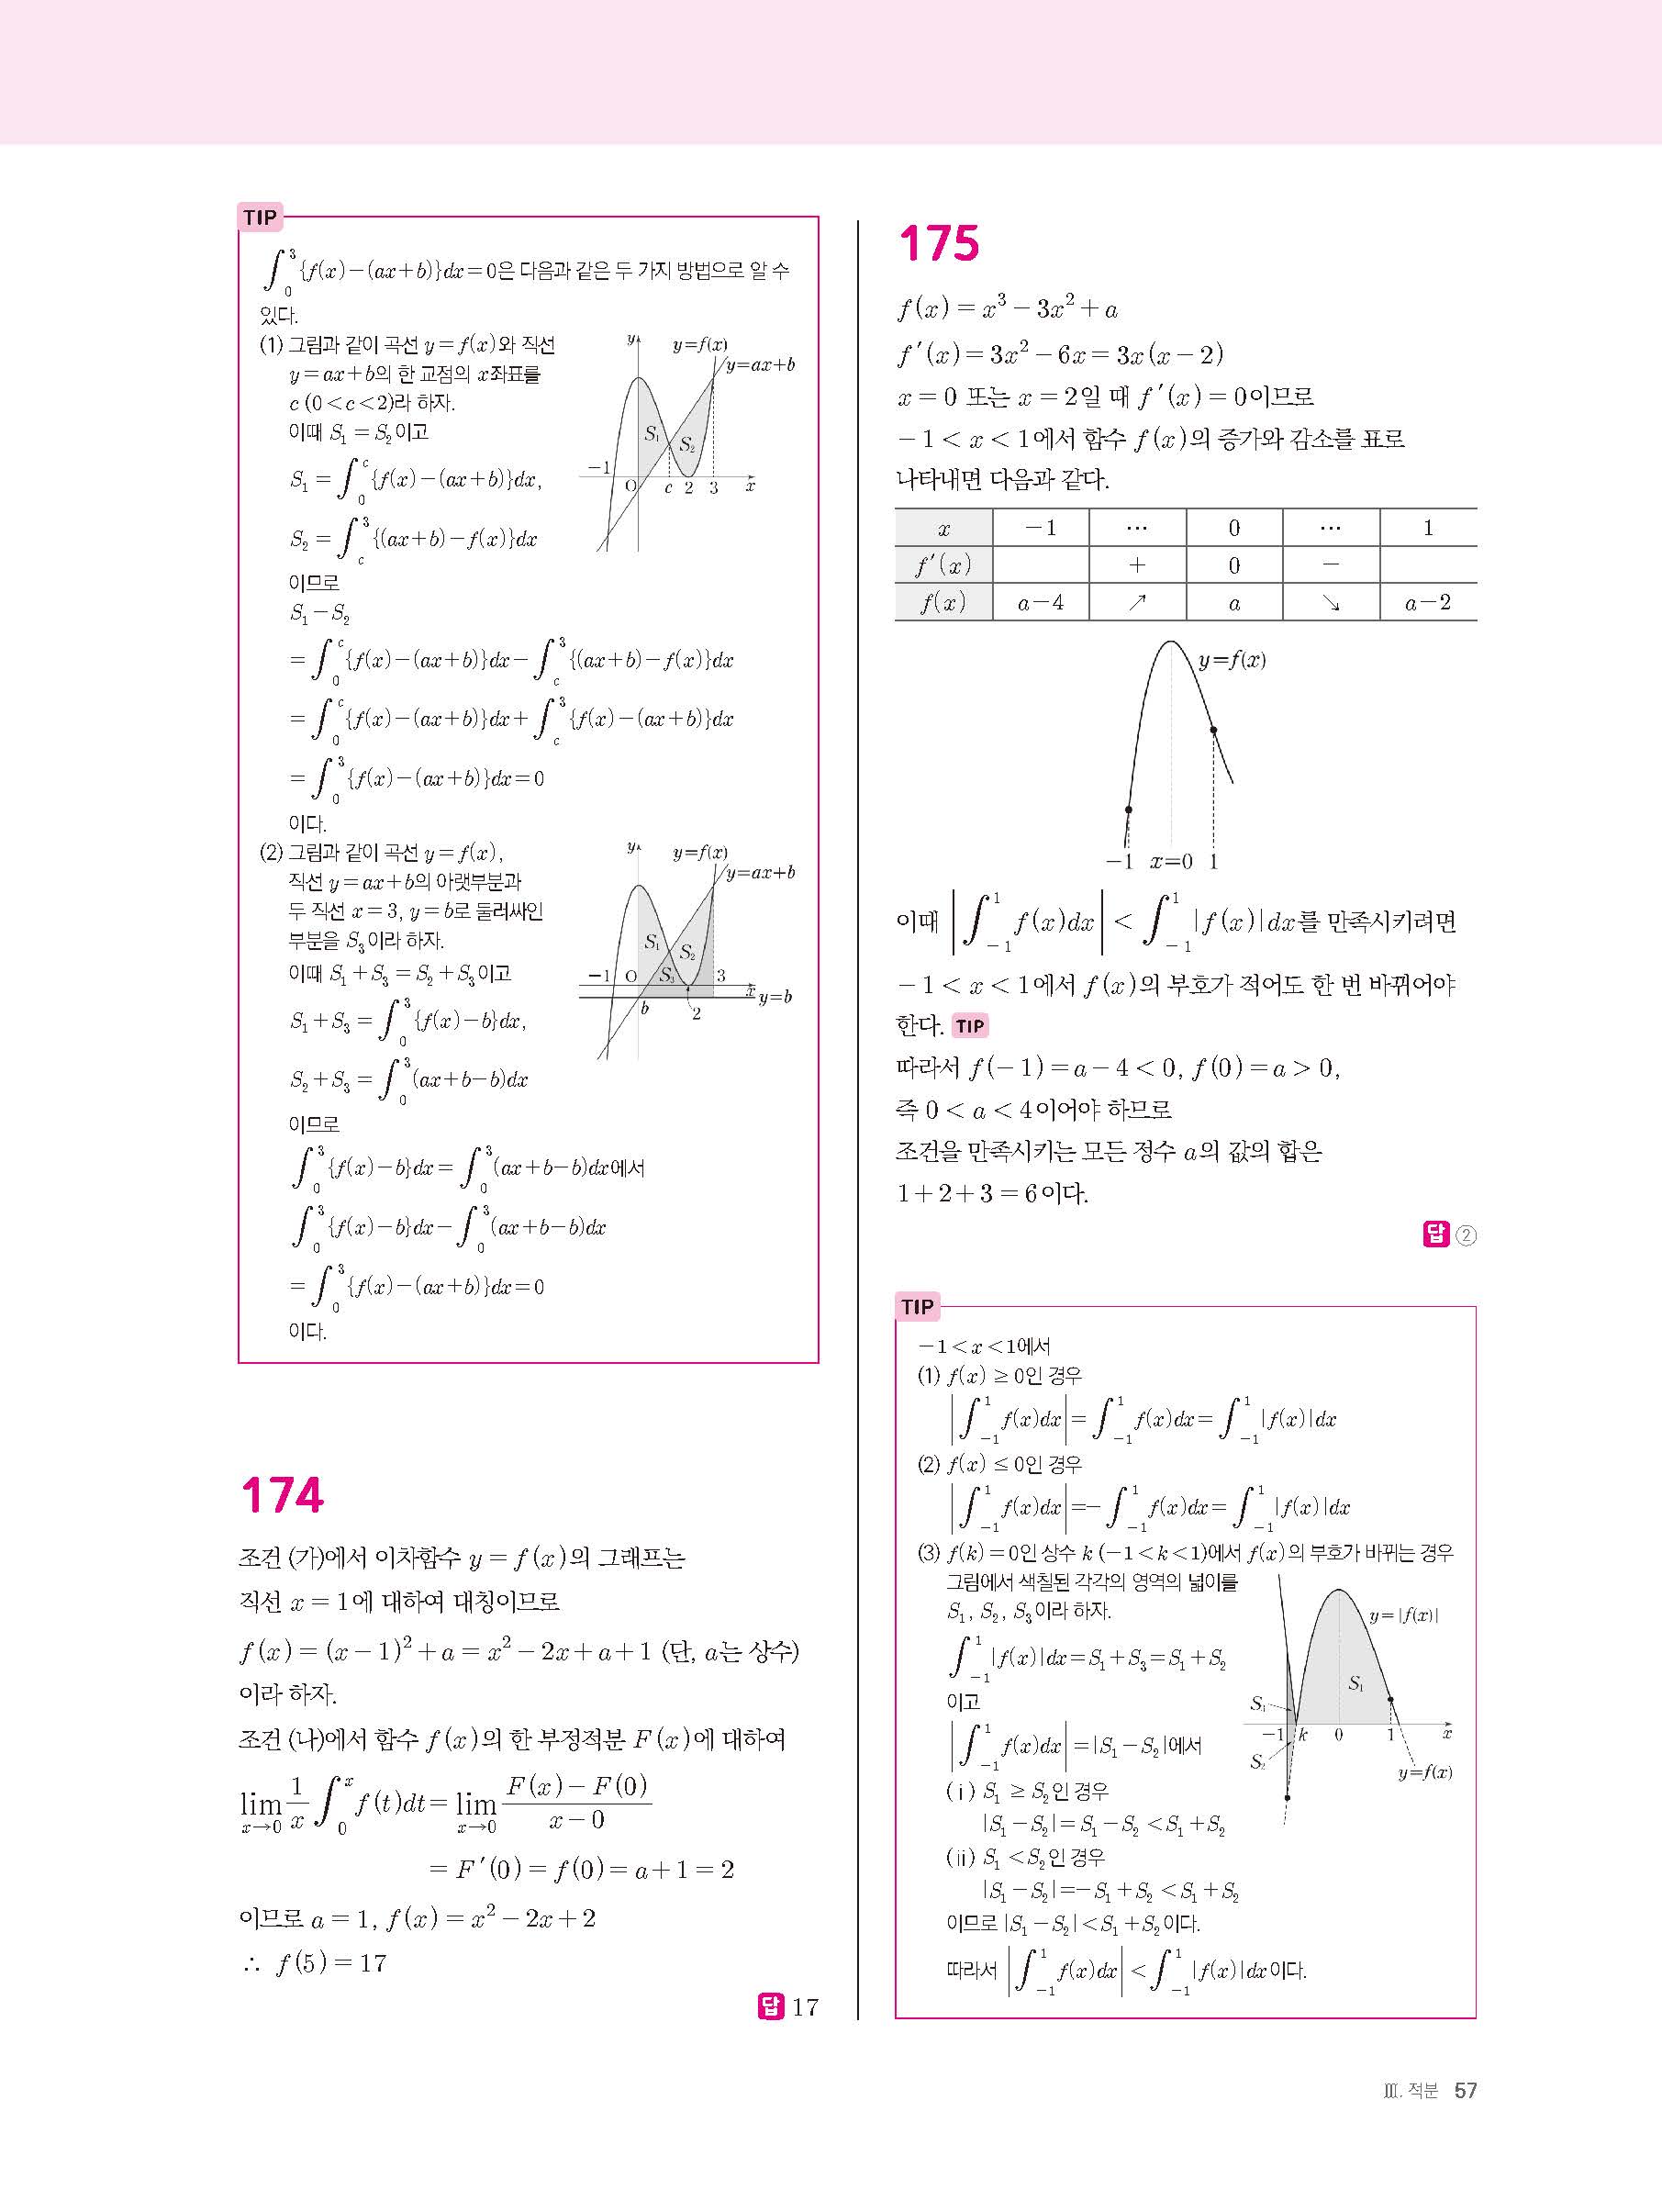 TIP
∫₀³{f(x)−(ax+b)}dx=0은 다음과 같은 두 가지 방법으로 알 수
있다.
(1) 그림과 같이 곡선 y=f(x)와 직선
y=ax+b의 한 교점의 x좌표를
c (0<c<2)라 하자.
이때 S₁=S₂이고
S₁=∫₀ᶜ{f(x)−(ax+b)}dx,
S₂=∫_c^3{(ax+b)−f(x)}dx
이므로
y y=f(x)
y=ax+b
S₁ S₂
−1 O c 2 3 x
S₁−S₂
=∫₀ᶜ{f(x)−(ax+b)}dx−∫_c^3{(ax+b)−f(x)}dx
=∫₀ᶜ{f(x)−(ax+b)}dx+∫_c^3{f(x)−(ax+b)}dx
=∫₀³{f(x)−(ax+b)}dx=0
이다.
(2) 그림과 같이 곡선 y=f(x),
직선 y=ax+b의 아랫부분과
두 직선 x=3, y=b로 둘러싸인
부분을 S₃이라 하자.
이때 S₁+S₃=S₂+S₃이고
S₁+S₃=∫₀³{f(x)−b}dx,
S₂+S₃=∫₀³(ax+b−b)dx
이므로
y y=f(x)
y=ax+b
S₁ S₂
−1 O S₃ 3
x y=b
b 2
∫₀³{f(x)−b}dx=∫₀³(ax+b−b)dx에서
∫₀³{f(x)−b}dx−∫₀³(ax+b−b)dx
=∫₀³{f(x)−(ax+b)}dx=0
이다.
174
조건 (가)에서 이차함수 y=f(x)의 그래프는
직선 x=1에 대하여 대칭이므로
f(x)=(x−1)²+a=x²−2x+a+1 (단, a는 상수)
이라 하자.
조건 (나)에서 함수 f(x)의 한 부정적분 F(x)에 대하여
lim_{x→0} 1/x ∫₀ˣ f(t)dt=lim_{x→0} (F(x)−F(0))/(x−0)
=F′(0)=f(0)=a+1=2
이므로 a=1, f(x)=x²−2x+2
∴ f(5)=17
답 17
175
f(x)=x³−3x²+a
f′(x)=3x²−6x=3x(x−2)
x=0 또는 x=2일 때 f′(x)=0이므로
−1<x<1에서 함수 f(x)의 증가와 감소를 표로
나타내면 다음과 같다.
x −1 ⋯ 0 ⋯ 1
f′(x) + 0 −
f(x) a−4 ↗ a ↘ a−2
y=f(x)
−1 x=0 1
이때 |∫_{−1}^1 f(x)dx|<∫_{−1}^1 |f(x)|dx를 만족시키려면
−1<x<1에서 f(x)의 부호가 적어도 한 번 바뀌어야
한다. TIP
따라서 f(−1)=a−4<0, f(0)=a>0,
즉 0<a<4이어야 하므로
조건을 만족시키는 모든 정수 a의 값의 합은
1+2+3=6이다.
답 ②
TIP
−1<x<1에서
(1) f(x)≥0인 경우
|∫_{−1}^1 f(x)dx|=∫_{−1}^1 f(x)dx=∫_{−1}^1 |f(x)|dx
(2) f(x)≤0인 경우
|∫_{−1}^1 f(x)dx|=−∫_{−1}^1 f(x)dx=∫_{−1}^1 |f(x)|dx
(3) f(k)=0인 상수 k (−1<k<1)에서 f(x)의 부호가 바뀌는 경우
그림에서 색칠된 각각의 영역의 넓이를
S₁, S₂, S₃이라 하자.
∫_{−1}^1 |f(x)|dx=S₁+S₃=S₁+S₂
이고
|∫_{−1}^1 f(x)dx|=|S₁−S₂|에서
(ⅰ) S₁≥S₂인 경우
|S₁−S₂|=S₁−S₂<S₁+S₂
(ⅱ) S₁<S₂인 경우
|S₁−S₂|=−S₁+S₂<S₁+S₂
이므로 |S₁−S₂|<S₁+S₂이다.
따라서 |∫_{−1}^1 f(x)dx|<∫_{−1}^1 |f(x)|dx이다.
y=|f(x)|
S₁
S₃
−1 k 0 1 x
S₂
y=f(x)
Ⅲ. 적분 57